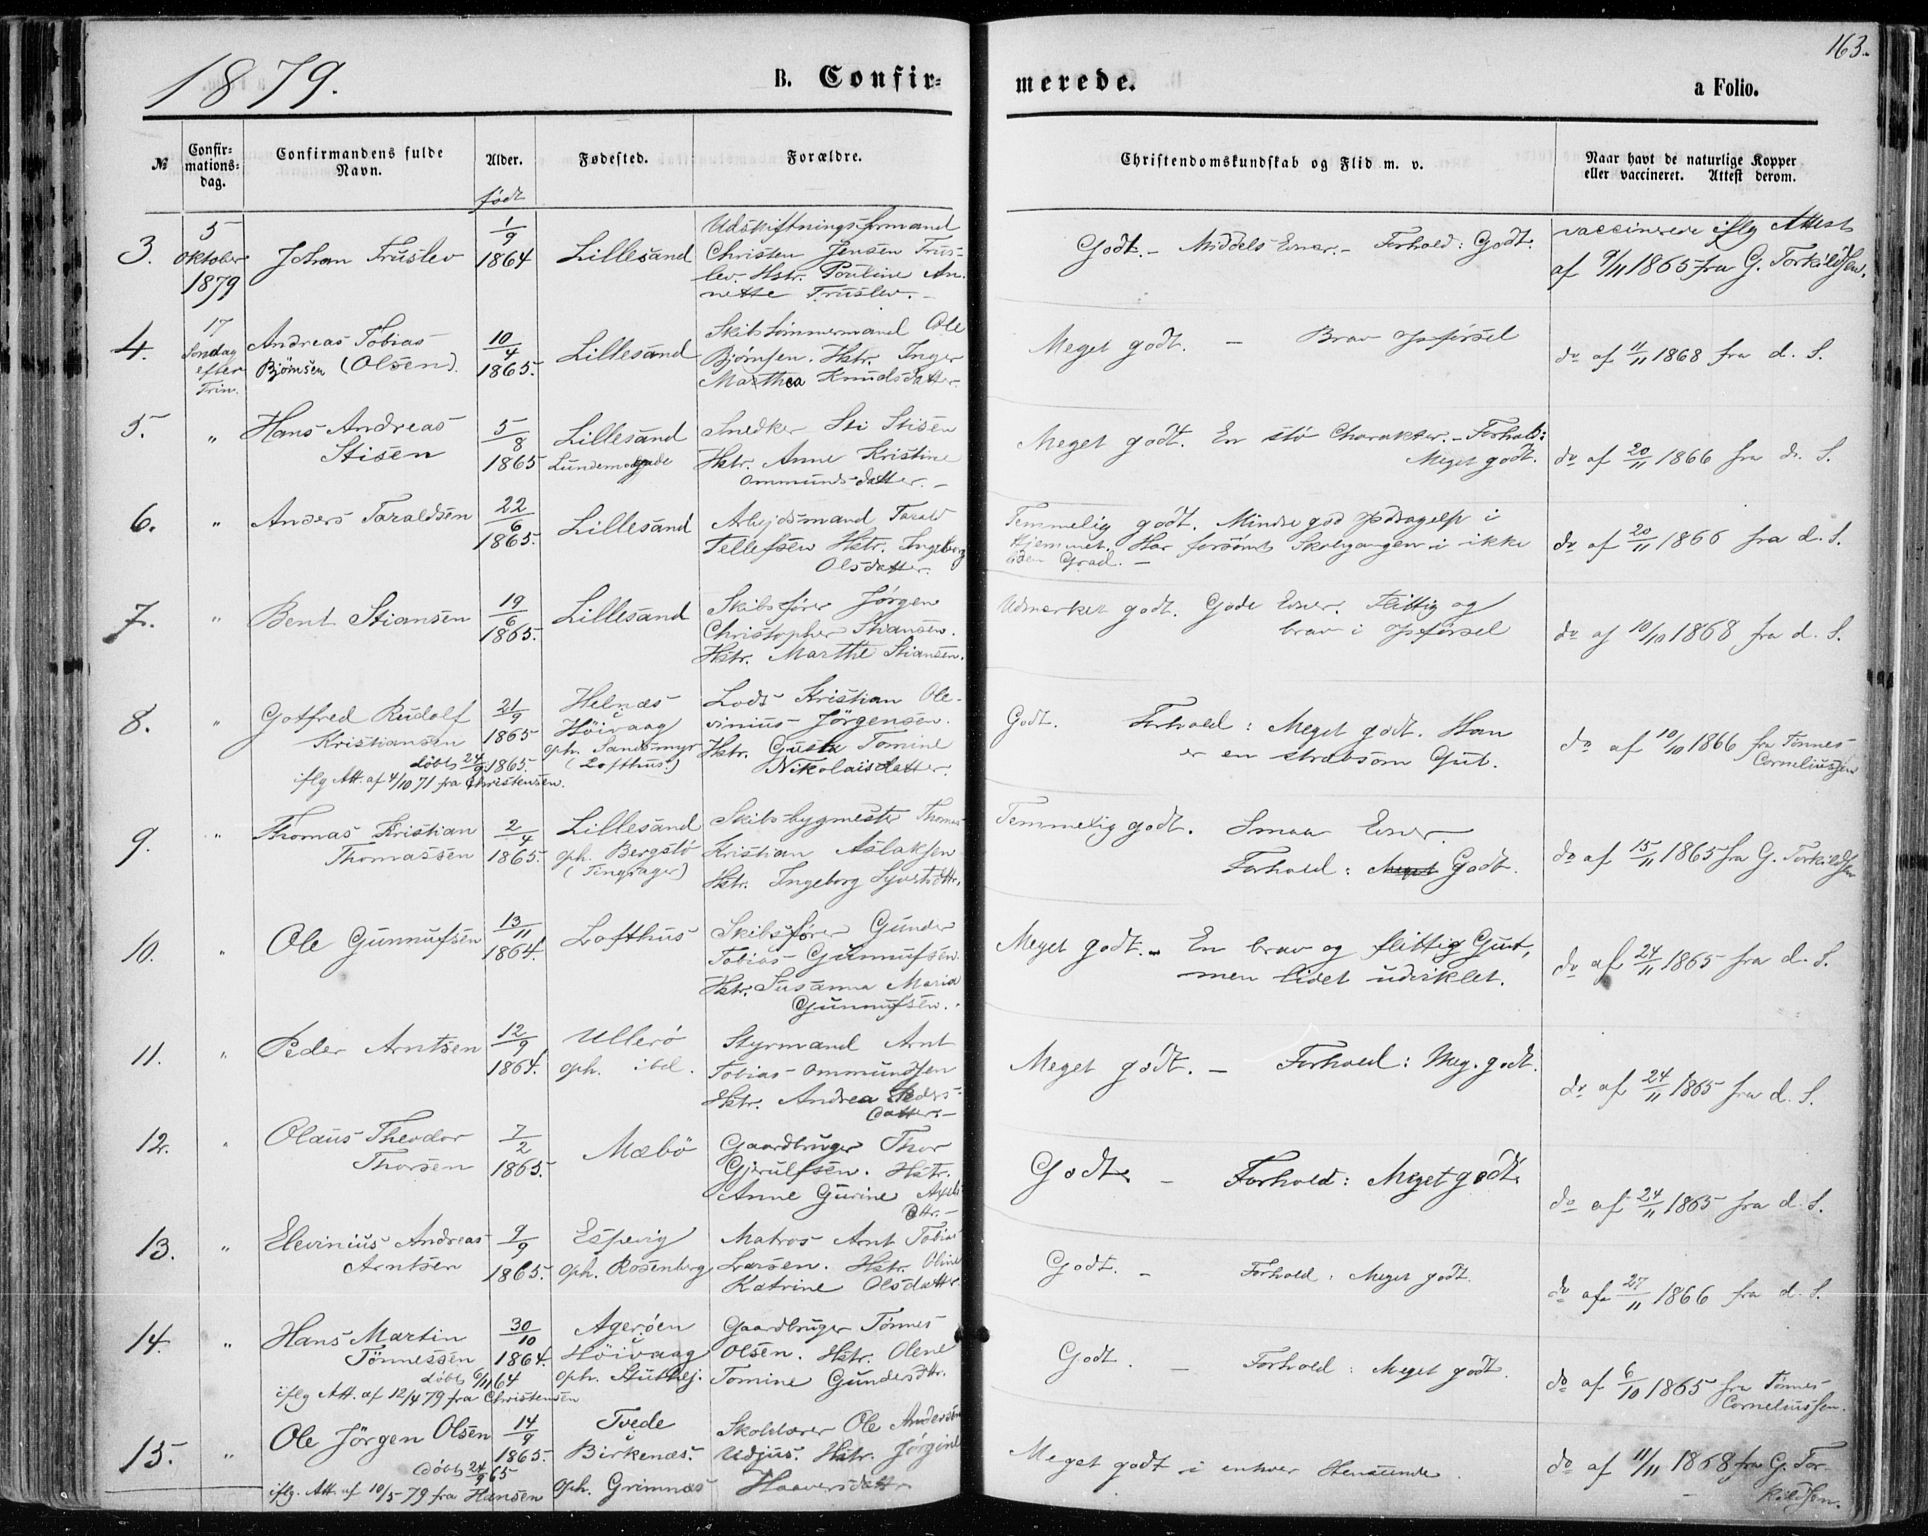 163.
1879. B. Confir= merede. a Folio.
№
Confir=
mations=
dag.
Confirmandens fulde
Navn.
Alder.
født
Fødested.
Forældre.
Christendomskundskab og Flid m. v.
Naar havt de naturlige Kopper
eller vaccineret. Attest derom.
3.
5
Oktober
1879
Johan Truslev
1/9
1864
Lillesand
Udskiftningsformand
Christen Jensen Trus-
lev. Hstr. Pouline An-
nette Truslev. -
Godt. - Middels Evner. - Forhold: Godt.
vaccinerede iflg Attest
af 9/11 1865 fra G. Torkildsen.
4.
17
Søndag
efter
Trin.
Andreas Tobias
Bjørnsen (Olsen).
10/4
1865.
Lillesand
Skibstømmermand Ole
Bjørnsen. Hstr. Inger
Marthea Knudsdatter.
Meget godt. - Brav Opførsel
do af 11/11 1868 fra d. S.
5.
"
Hans Andreas
Stisen
5/8
1865
Lillesand
Snedker Sti Stisen
Hstr. Anne Kristine
Ommundsdatter. -
Meget godt. En stø Charakter. - Forhold:
Meget godt.
do af 20/11 1866 fra d. S.
6.
"
Anders Taraldsen
22/6
1865.
Lillesand
Arbejdsmand Tarald
Tellefsen Hstr. Ingeborg
Olsdatter.
Temmelig godt. Mindre god Opdragelse i
Hjemmet. Har forsømt Skolegangen i ikke
liden Grad. -
do af 20/11 1866 fra d. S.
7.
"
Bent Stiansen
19/6
1865.
Lillesand
Skibsfører Jørgen
Christopher Stiansen.
Hstr. Marthe Stiansen.
Udmærket godt. Gode Evner. Flittig og
brav i Opførsel
do af 10/10 1868 fra d. S.
8.
"
Gotfred Rudolf
Kristiansen
døbt 24/9 1865.
iflg Att. af 4/10 71 fra Christensen.
21/9
1865
Helnæs
Höivaag
oph. Sandsmyr
(Lofthus.)
Lods Kristian Ole-
vinius Jørgensen.
Hstr. Gusta Tomine
Nikolaisdatter.
Godt. Forhold: Meget godt. Han
er en stræbsom Gut.
do af 10/10 1866 fra Tønnes
Corneliussen
9.
"
Thomas Kristian
Thomassen
2/4
1865.
Lillesand
oph. Bergstø
(Tingsager)
Skibsbygmester Thomas
Kristian Aslaksen
Hstr. Ingeborg
Temmelig godt. Smaa Evner
Forhold: Meget Godt.
do af 15/11 1865 fra G. Torkildsen
10.
"
Ole Gunnufsen
13/11
1864.
Lofthus
Skibsfører Gunder
Tobias Gunnufsen.
Hstr. Susanna Maria
Gunnufsen.
Meget godt. - En brav og flittig Gut,
men lidet udviklet.
do af 24/11 1865 fra d. S.
11.
"
Peder Arntsen
12/9
1864.
Ullerö
oph. ibd.
Styrmand Arnt
Tobias Ommundsen
Hstr. Andrea Peders-
datter -
Meget godt. - Forhold: Meg. godt.
do af 24/11 1865 fra d. S.
12.
"
Olaus Theodor
Thorsen
7/2
1865.
Mæbö
Gaardbruger Thor
Gjerulfsen. Hstr.
Anne Gurine Axels-
dtr. -
Godt. - Forhold: Meget godt.
do af 24/11 1865 fra d. S.
13.
"
Elevinius Andreas
Arntsen
9/9
1865.
Espevig
oph. Rosenberg
Matros Arnt Tobias
Larsen. Hstr. Oline
Katrine Olsdatter
Godt. - Forhold: Meget godt.
do af 27/11 1866 fra d. S.
14.
"
Hans Martin
Tönnessen
døbt 6/11 64
iflg Att. af 12/4 79 fra Christensen
30/10
1864.
Agerøen
Höivaag
Gaardbruger Tönnes
Olsen. Hstr. Olene
Tomine Gundersdtr.
Godt. - Forhold: Meget godt.
do af 6/10 1865 fra Tønnes
Corneliussen.
15.
"
Ole Jörgen Olsen
døbt 24/9 65
iflg. Att. af 10/5 79 fra Hansen
14/9
1865.
Tvede
Birkenæs.
oph. Grimnæs
Skolelærer Ole Andersen
Udjus. Hstr. Jørgine
Haaversdatter
Meget godt i enhver Henseende.
do af 11/11 1868 fra G. Tor-
kildsen.